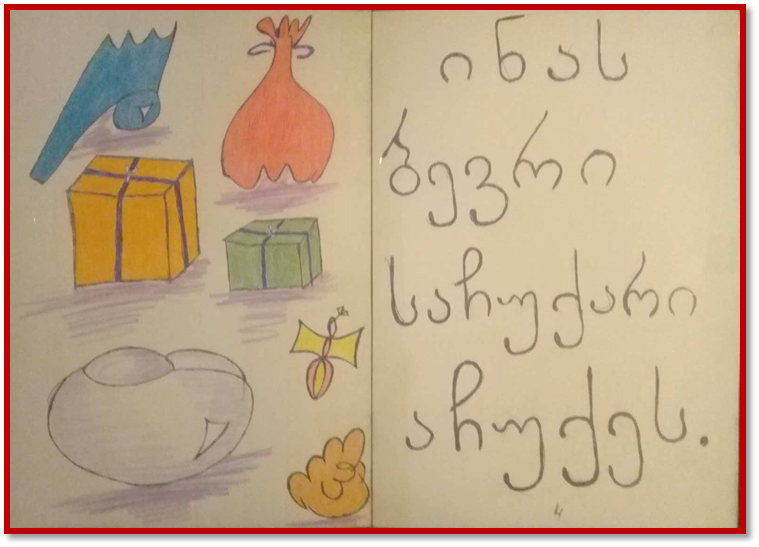 ინას
ბევრი
საჩუქარი
აჩუქეს.
4